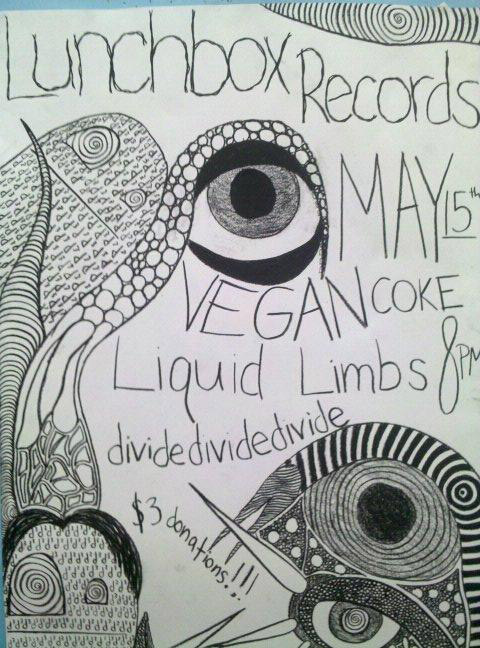 Lunchbox
Records
MAY 15th
VEGAN COKE
Liquid Limbs 8PM
dividedividedivide
$3 donations...!!!